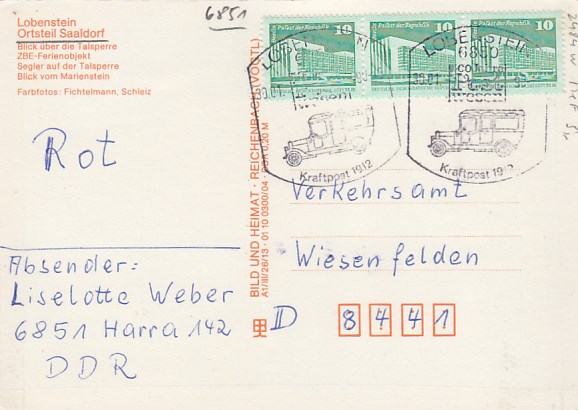 Lobenstein
Ortsteil Saaldorf
Blick über die Talsperre
ZBE-Ferienobjekt
Segler auf der Talsperre
Blick vom Marienstein
Farbfotos: Fichtelmann, Schleiz
6851
Palast der Republik 10
Palast der Republik 10
10
LOBENSTEIN
6850
Post
Kraftpost 1912
LOBENSTEIN
6850
Post
Kraftpost 1912
Rot
Absender:
Liselotte Weber
6851 Harra 142
DDR
BILD UND HEIMAT · REICHENBACH (VOGTL)
A1/III/26/13 · 01 10 0300/04
Verkehrsamt
Wiesenfelden
D 8441